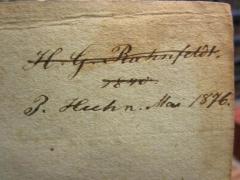 H. G. Rahnfeldt.
1840.
P. Huhn. Mai 1876.